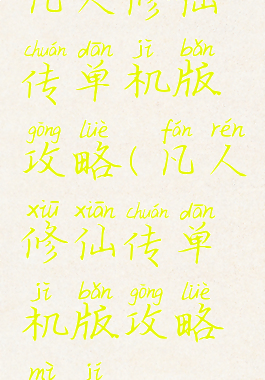 凡人修仙
chuán dān jī bǎn
传单机版
gōng lüè fán rén
攻略(凡人
xiū xiān chuán dān
修仙传单
jī bǎn gōng lüè
机版攻略
mì jí